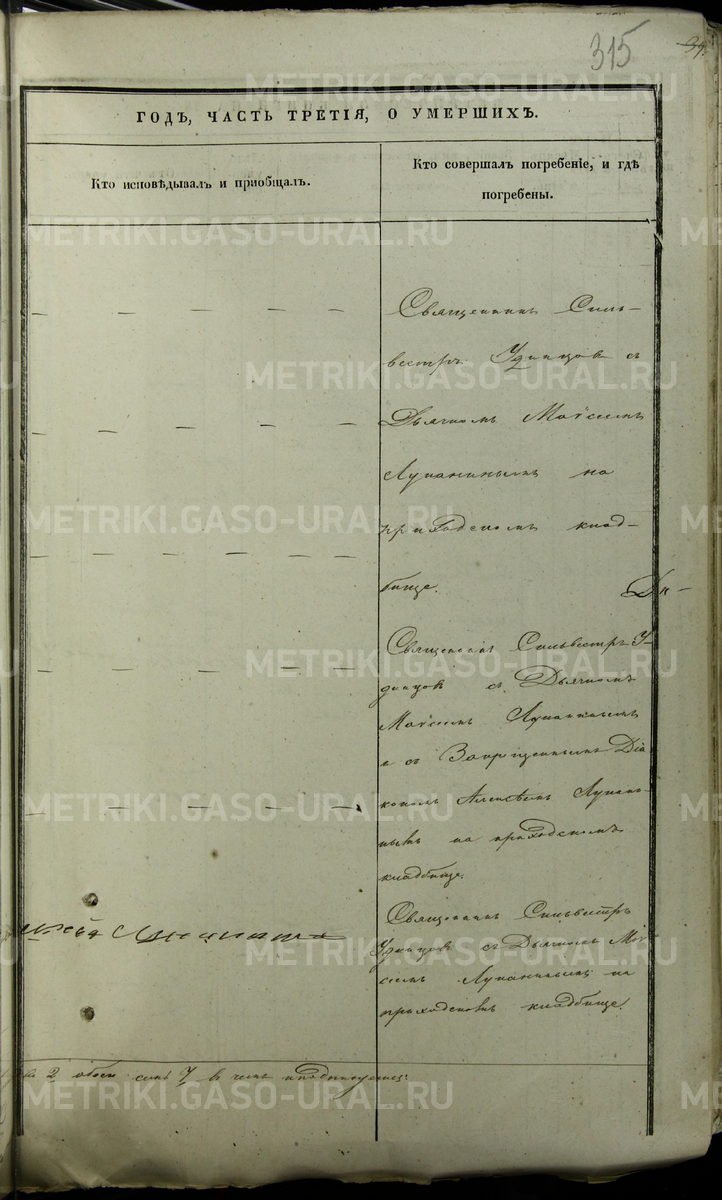 315
34.
ГОДЪ, ЧАСТЬ ТРЕТІЯ, О УМЕРШИХЪ.
Кто исповѣдывалъ и пріобщалъ.
Кто совершалъ погребеніе, и гдѣ
погребены.
Священникъ Силь-
вестръ Удинцов с
Дьячкомъ Моѷсеемъ
Лупанинымъ на
приходскомъ клад-
бище.
Священникъ Сильвестръ У-
динцов съ Дьячкомъ
Моѷсеемъ Лупанинымъ
и съ Запрещеннымъ Діа
кономъ Алексѣемъ Лупани-
нымъ на приходскомъ
кладбище.
Священникъ Сильвестръ
Удинцов съ Дьячкомъ Моѷ
сеемъ Лупанинымъ на
приходскомъ кладбище.
2 обоего 7 в чемъ и подписуемся:
METRIKI.GASO-URAL.RU